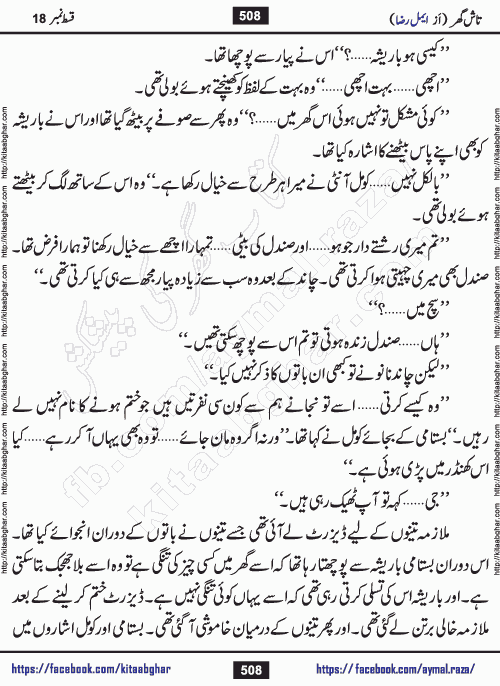 تاش گھر (از ایمل رضا) 508 قسط نمبر 18
’’کیسی ہو باریشہ......؟‘‘ اس نے پیار سے پوچھا تھا۔
’’اچھی...... بہت اچھی......‘‘ وہ بہت کے لفظ کو کھینچتے ہوئے بولی تھی۔
’’کوئی مشکل تو نہیں ہوئی اس گھر میں......؟‘‘ وہ پھر سے صوفے پر بیٹھ گیا تھا اور اس نے باریشہ
کو بھی اپنے پاس بیٹھنے کا اشارہ کیا تھا۔
’’بالکل نہیں...... کومل آنٹی نے میرا ہر طرح سے خیال رکھا ہے۔‘‘ وہ اس کے ساتھ لگ کر بیٹھتے
ہوئے بولی تھی۔
’’تم میری رشتے دار جو ہو...... اور صندل کی بیٹی...... تمہارا اچھے سے خیال رکھنا تو ہمارا فرض تھا۔
صندل بھی میری چہیتی ہوا کرتی تھی۔ چاند کے بعد وہ سب سے زیادہ پیار مجھ سے ہی کیا کرتی تھی۔‘‘
’’سچ میں......؟‘‘
’’ہاں...... صندل زندہ ہوتی تو تم اس سے پوچھ سکتی تھیں۔‘‘
’’لیکن چاند نانو نے تو کبھی ان باتوں کا ذکر نہیں کیا۔‘‘
’’وہ کیسے کرتی...... اسے تو نجانے ہم سے کون سی نفرتیں ہیں جو ختم ہونے کا نام نہیں لے
رہیں۔‘‘ بستامی کے بجائے کومل نے کہا تھا۔ ’’ورنہ اگر وہ مان جائے...... تو وہ بھی یہاں آ کر رہے...... کیا
اس کھنڈر میں پڑی ہوئی ہے۔‘‘
’’جی...... کہہ تو آپ ٹھیک رہی ہیں۔‘‘
ملازمہ تینوں کے لیے ڈیزرٹ لے آئی تھی جسے تینوں نے باتوں کے دوران انجوائے کیا تھا۔
اس دوران بستامی باریشہ سے پوچھتا رہا تھا کہ اسے گھر میں کسی چیز کی تنگی ہے تو وہ اسے بلا جھجک بتا سکتی
ہے۔ اور باریشہ اس کی تسلی کرتی رہی تھی کہ اسے یہاں کوئی تنگی نہیں ہے۔ ڈیزرٹ ختم کر لینے کے بعد
ملازمہ خالی برتن لے گئی تھی۔ اور پھر تینوں کے درمیان خاموشی آ گئی تھی۔ بستامی اور کومل اشاروں میں
https://facebook.com/kitaabghar 508 https://facebook.com/aymal.raza/
http://kitaabghar.com http://kitaabghar.com http://kitaabghar.com http://kitaabghar.com http://kitaabghar.com
http://kitaabghar.com http://kitaabghar.com http://kitaabghar.com http://kitaabghar.com http://kitaabghar.com